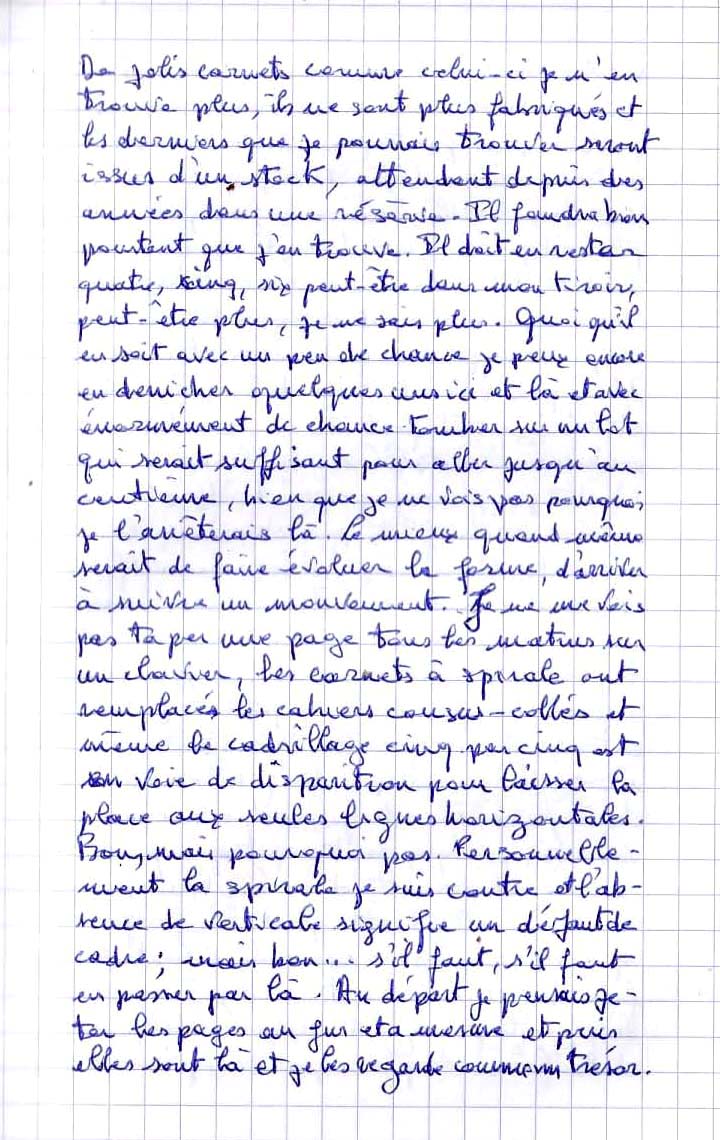 De jolis carnets comme celui-ci je n'en
trouve plus, ils ne sont plus fabriqués et
les derniers que je pourrais trouver seront
issus d'un stock, attendant depuis des
années dans une réserve. Il faudra bien
pourtant que j'en trouve. Il doit en rester
quatre, cinq, six peut-être dans mon tiroir,
peut-être plus, je ne sais plus. Quoi qu'il
en soit avec un peu de chance je peux encore
en dénicher quelques uns ici et là et avec
énormément de chance tomber sur un lot
qui serait suffisant pour aller jusqu'au
centième, bien que je ne vois pas pourquoi
je l'arrêterais là. Le mieux quand même
serait de faire évoluer la forme, d'arriver
à suivre un mouvement. Je ne me vois
pas taper une page tous les matins sur
un clavier, les carnets à spirale ont
remplacés les cahiers cousus-collés et
même le cadrillage cinq par cinq est
en voie de disparition pour laisser la
place aux seules lignes horizontales.
Bon, mais pourquoi pas. Personnelle-
ment la spirale je suis contre et l'ab-
sence de verticale signifie un défaut de
cadre; mais bon... s'il faut, s'il faut
en passer par là. Au départ je pensais je-
ter les pages au fur et à mesure et puis
elles sont là et je les regarde comme un trésor.